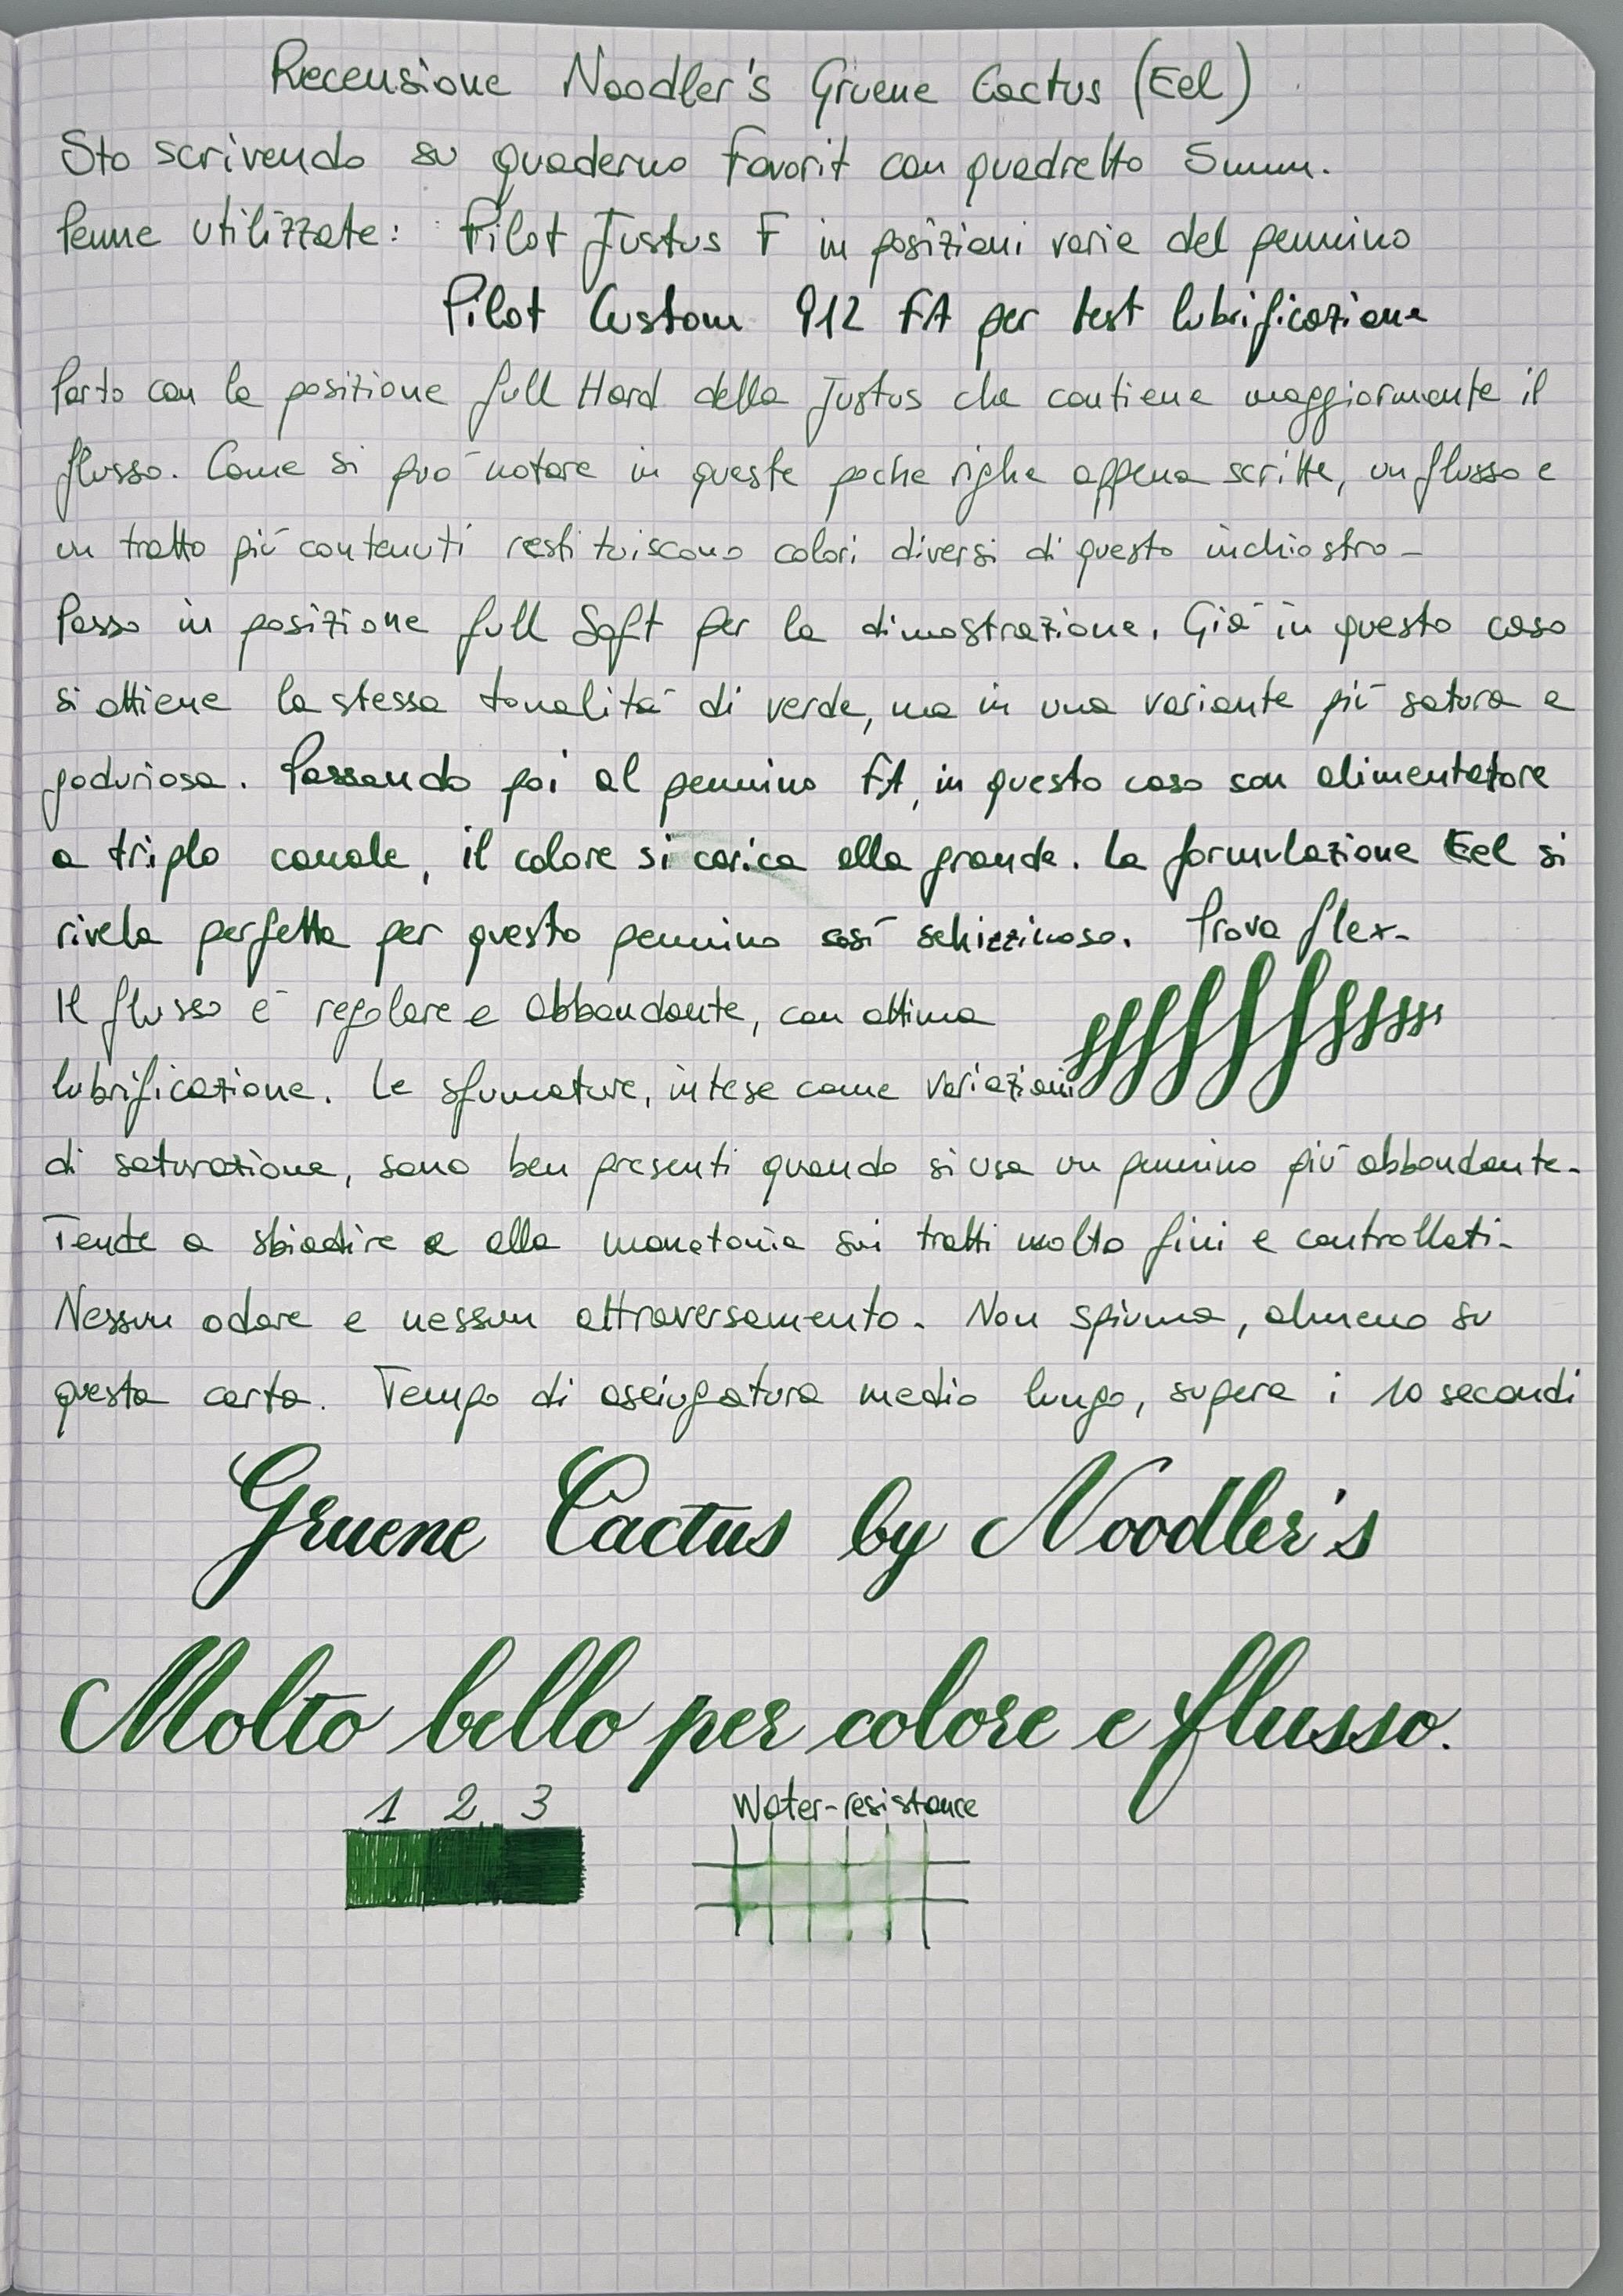 Recensione Noodler's Gruene Cactus (Eel)
Sto scrivendo su quaderno Favorit con quadretto 5mm.
Penne utilizzate: Pilot Justus F in posizioni varie del pennino
Pilot Custom 912 FA per test lubrificazione
Parto con la posizione full Hard della Justus che contiene maggiormente il
flusso. Come si può notare in queste poche righe appena scritte, un flusso e
un tratto più contenuti restituiscono colori diversi di questo inchiostro-
Passo in posizione full Soft per la dimostrazione. Già in questo caso
si ottiene la stessa tonalità di verde, ma in una variante più satura e
goduriosa. Passando poi al pennino FA, in questo caso con alimentatore
a triplo canale, il colore si carica alla grande. La formulazione Eel si
rivela perfetta per questo pennino così schizzinoso. Prova flex-
Il flusso è regolare e abbondante, con ottima
lubrificazione. Le sfumature, intese come variazioni
di saturazione, sono ben presenti quando si usa un pennino più abbondante-
Tende a sbiadire e alla monotonia sui tratti molto fini e controllati-
Nessun odore e nessun attraversamento. Non spiuma, almeno su
questa carta. Tempo di asciugatura medio lungo, supera i 10 secondi
Gruene Cactus by Noodler's
Molto bello per colore e flusso.
1 2 3 Water-resistance